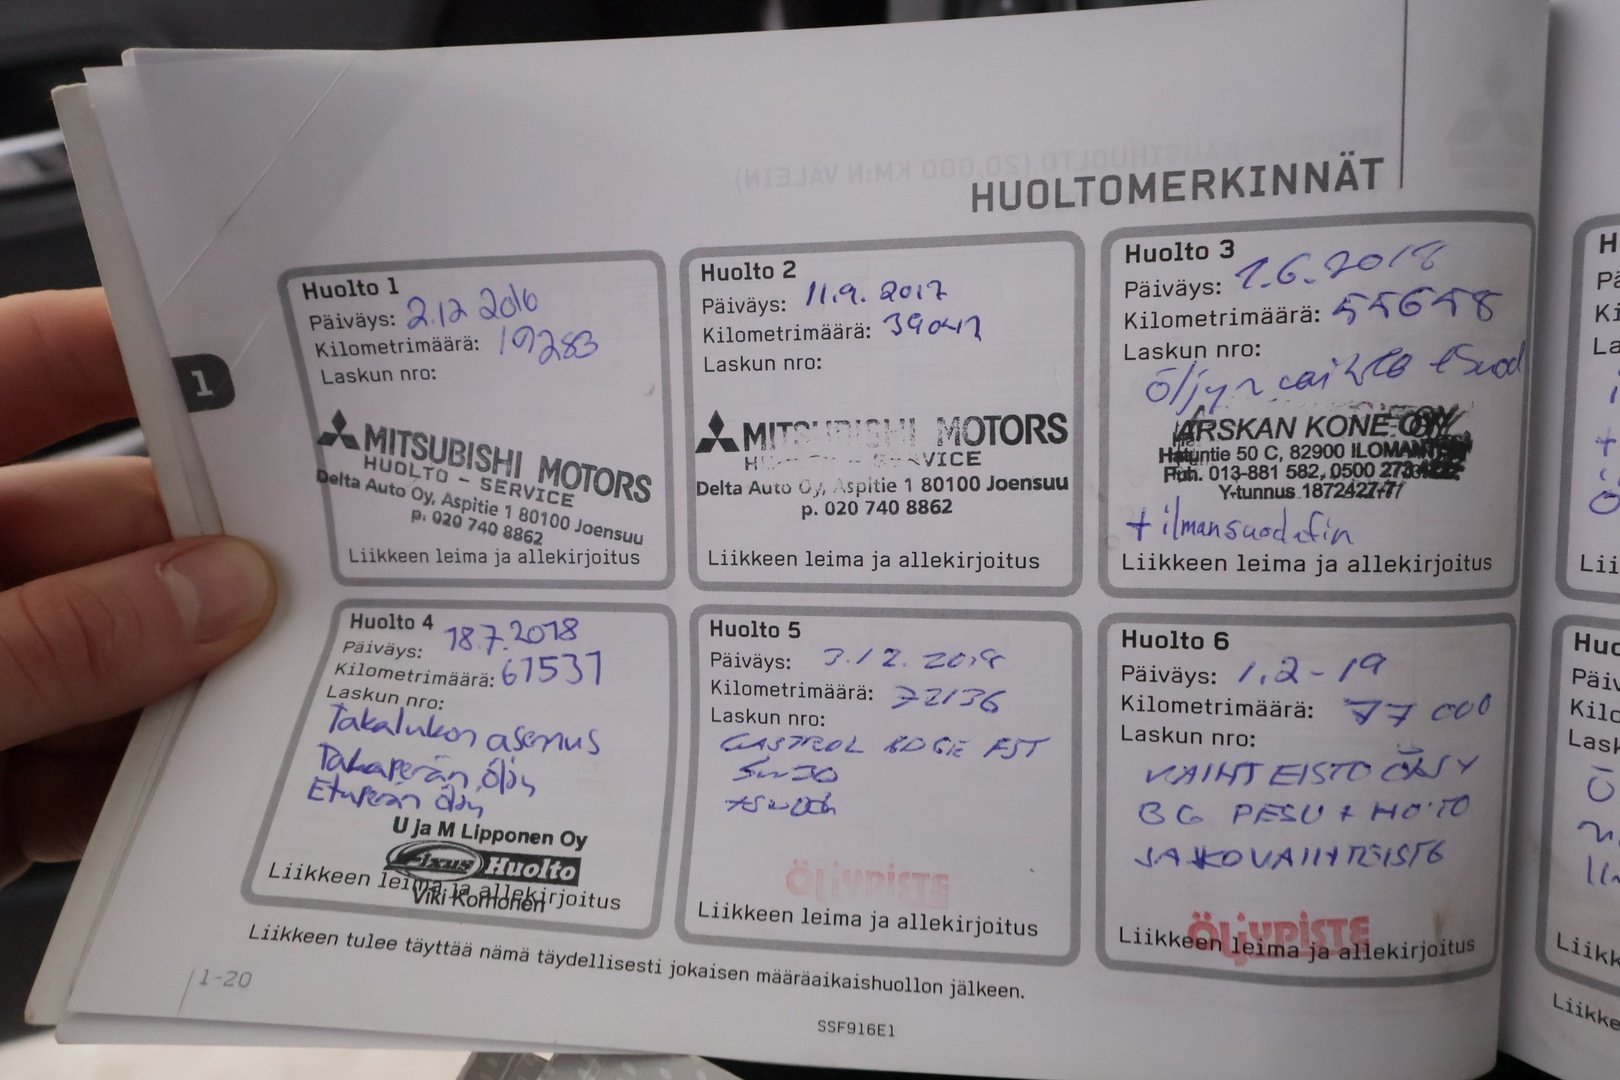 HUOLTOMERKINNÄT
1
Huolto 1
Päiväys: 2.12 2016
Kilometrimäärä: 19283
Laskun nro:
MITSUBISHI MOTORS
HUOLTO - SERVICE
Delta Auto Oy, Aspitie 1 80100 Joensuu
p. 020 740 8862
Liikkeen leima ja allekirjoitus
Huolto 2
Päiväys: 11.9. 2017
Kilometrimäärä:
Laskun nro:
MITSUBISHI MOTORS
HUOLTO - SERVICE
Delta Auto Oy, Aspitie 1 80100 Joensuu
p. 020 740 8862
Liikkeen leima ja allekirjoitus
Huolto 3
Päiväys: 1.6.2018
Kilometrimäärä: 55658
Laskun nro:
Öljyn vaihto
ARSKAN KONE OY
Hatuntie 50 C, 82900 ILOMANTSI
Puh. 013-881 582, 0500
Y-tunnus 1872427-7
+ ilmansuodatin
Liikkeen leima ja allekirjoitus
Huolto 4
Päiväys: 18.7.2018
Kilometrimäärä: 61531
Laskun nro:
Takalukon asennus
Takaperän öljy
Etuperän öljy
U ja M Lipponen Oy
Fixus Huolto
Viki Korhonen
Liikkeen leima ja allekirjoitus
Huolto 5
Päiväys: 3.12. 2018
Kilometrimäärä: 72136
Laskun nro:
CASTROL EDGE FST
5W30
ÖLJYPISTE
Liikkeen leima ja allekirjoitus
Huolto 6
Päiväys: 1.2-19
Kilometrimäärä: 77 000
Laskun nro:
VAIHTEISTO ÖLJY
BG PESU + HOITO
JAKOVAIHTEISTO
ÖLJYPISTE
Liikkeen leima ja allekirjoitus
Liikkeen tulee täyttää nämä täydellisesti jokaisen määräaikaishuollon jälkeen.
1-20
SSF916E1